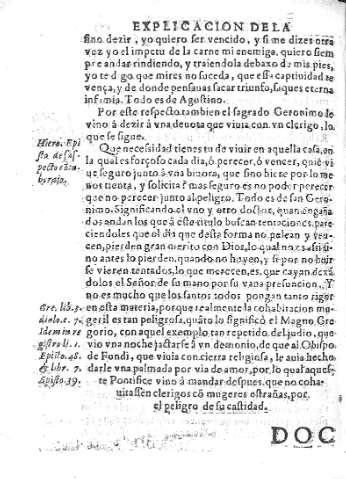 EXPLICACION DE LA
sino dezir, yo quiero ser vencido, y si me dizes otra
vez yo el impetu de la carne mi enemiga, quiero siem
pre andar rindiendo, y traiendola debaxo de mis pies,
yo te digo que mires no suceda, que essa captiuidad te
vença, y de donde pensauas sacar triunfo, saques eterna
infamia. Todo es de Agostino.
Por este respecto tambien el sagrado Geronimo le
vino à dezir à vna deuota que viuia con vn clerigo, lo
que se sigue.
Hiero. Epi
sta de sus-
pecto cōtu-
bernio.
Que necesidad tienes tu de viuir en aquella casa, en
la qual es forçoso cada dia, ó perecer, ó vencer, quiē vi-
ue seguro junto à vna biuora, que sino hiere por lo me
nos tienta, y solicita? mas seguro es no poder perecer
que no perecer junto al peligro. Todo es de san Gero-
nimo. Significando el vno y otro doctor, quan engaña
dos andan los que à este titulo buscan tentaciones, pare
ciendoles que el dia que desta forma no pelean y ven-
cen, pierden gran merito con Dios, lo qual no es assi si
no antes lo pierden, quando no huyen, y si por no huir
se vieren tentados, lo que merecen es, que cayan dexā
dolos el Señor de su mano por su vana presuncion. Y
no es mucho que los santos todos pongan tanto rigor
Gre. lib. 3.
dialo. c. 7.
Idem in re
gistro li. 1.
Episto. 48.
& libr. 7.
Episto. 39.
en esta materia, porque realmente la cohabitacion mu-
geril es tan peligrosa, quāto lo significò el Magno Gre
gorio, con aquel exemplo tan repetido del judio, que
vio vna noche jactarse à vn demonio, de que al Obispo
de Fundi, que viuia con cierta religiosa, le auia hecho
darle vna palmada por via de amor, por lo qual aques-
te Pontifice vino à mandar despues, que no coha-
uitassen clerigos cō mugeres estrañas, por
el peligro de su castidad.
DOC